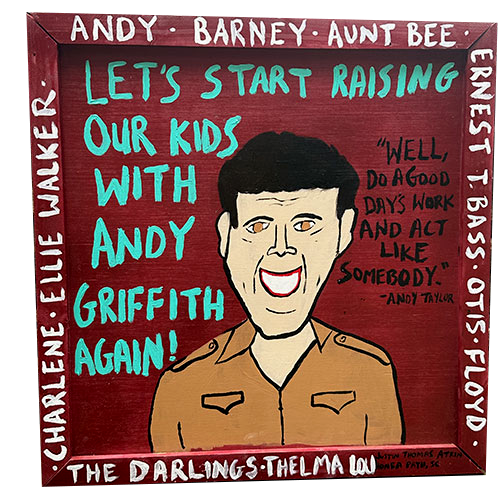 ANDY · BARNEY · AUNT BEE ·
ERNEST T. BASS · OTIS · FLOYD ·
THE DARLINGS · THELMA LOU
· CHARLENE · ELLIE WALKER ·
LET'S START RAISING
OUR KIDS
WITH
ANDY
GRIFFITH
AGAIN!
"WELL,
DO A GOOD
DAY'S WORK
AND ACT
LIKE
SOMEBODY."
-ANDY TAYLOR
THOMAS
PATH, SC